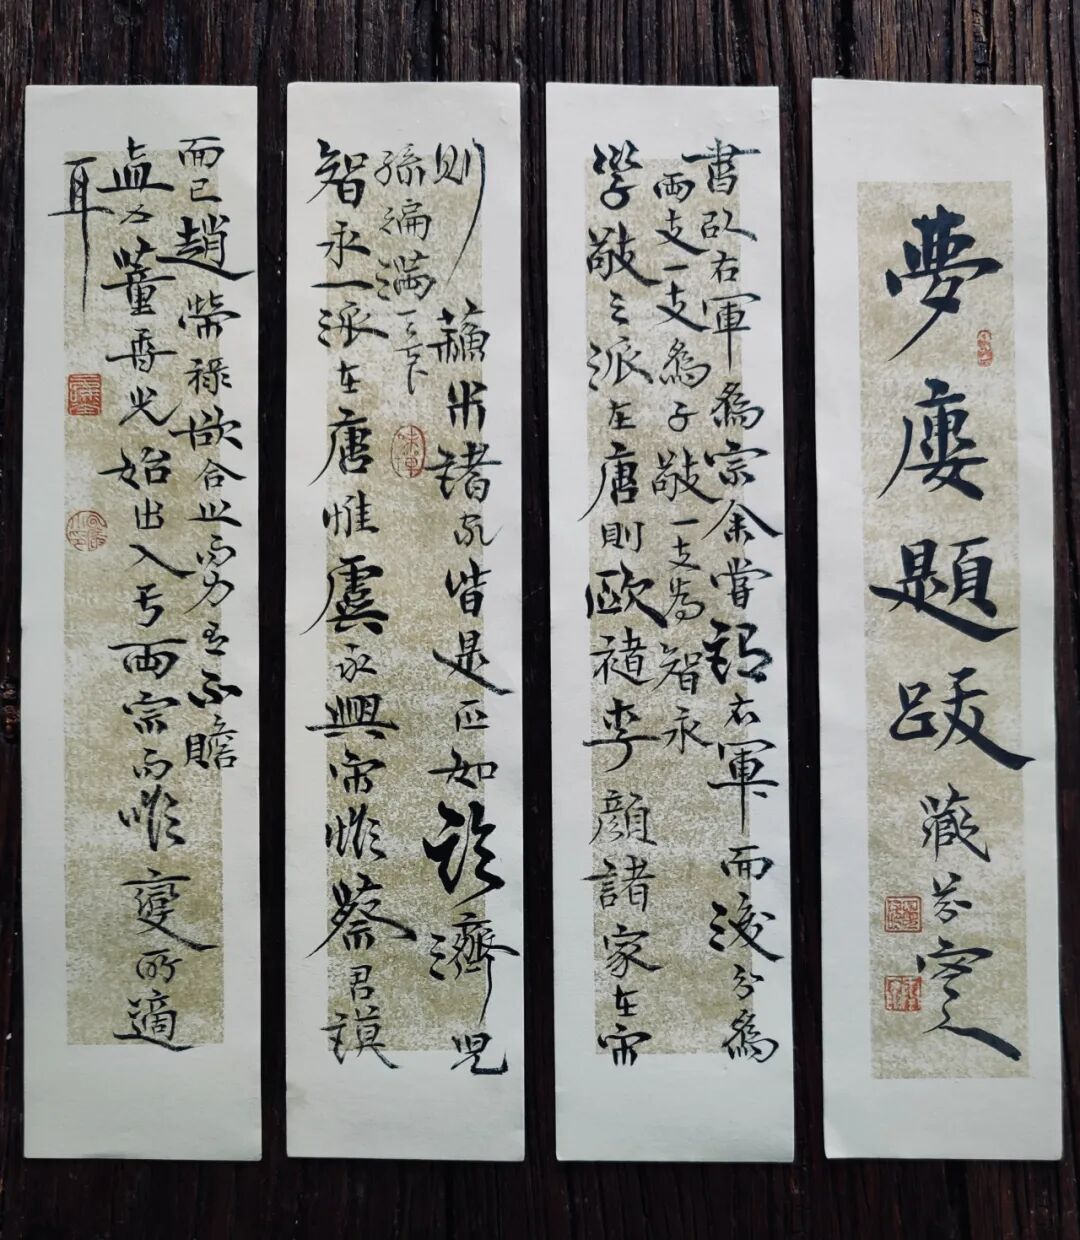 夢廔題跋
書以右軍爲宗余嘗謂右軍而後分爲
兩支一支爲子敬一支為智永
學敬之派在唐則歐褚李顏諸家在宋
則蘇米諸家皆是正如臨濟兒
孫遍滿天下
智永一派在唐惟虞永興宋惟蔡君謨
而已趙榮祿欲合之而力有不贍
直董香光始出入于兩宗而惟變所適
耳